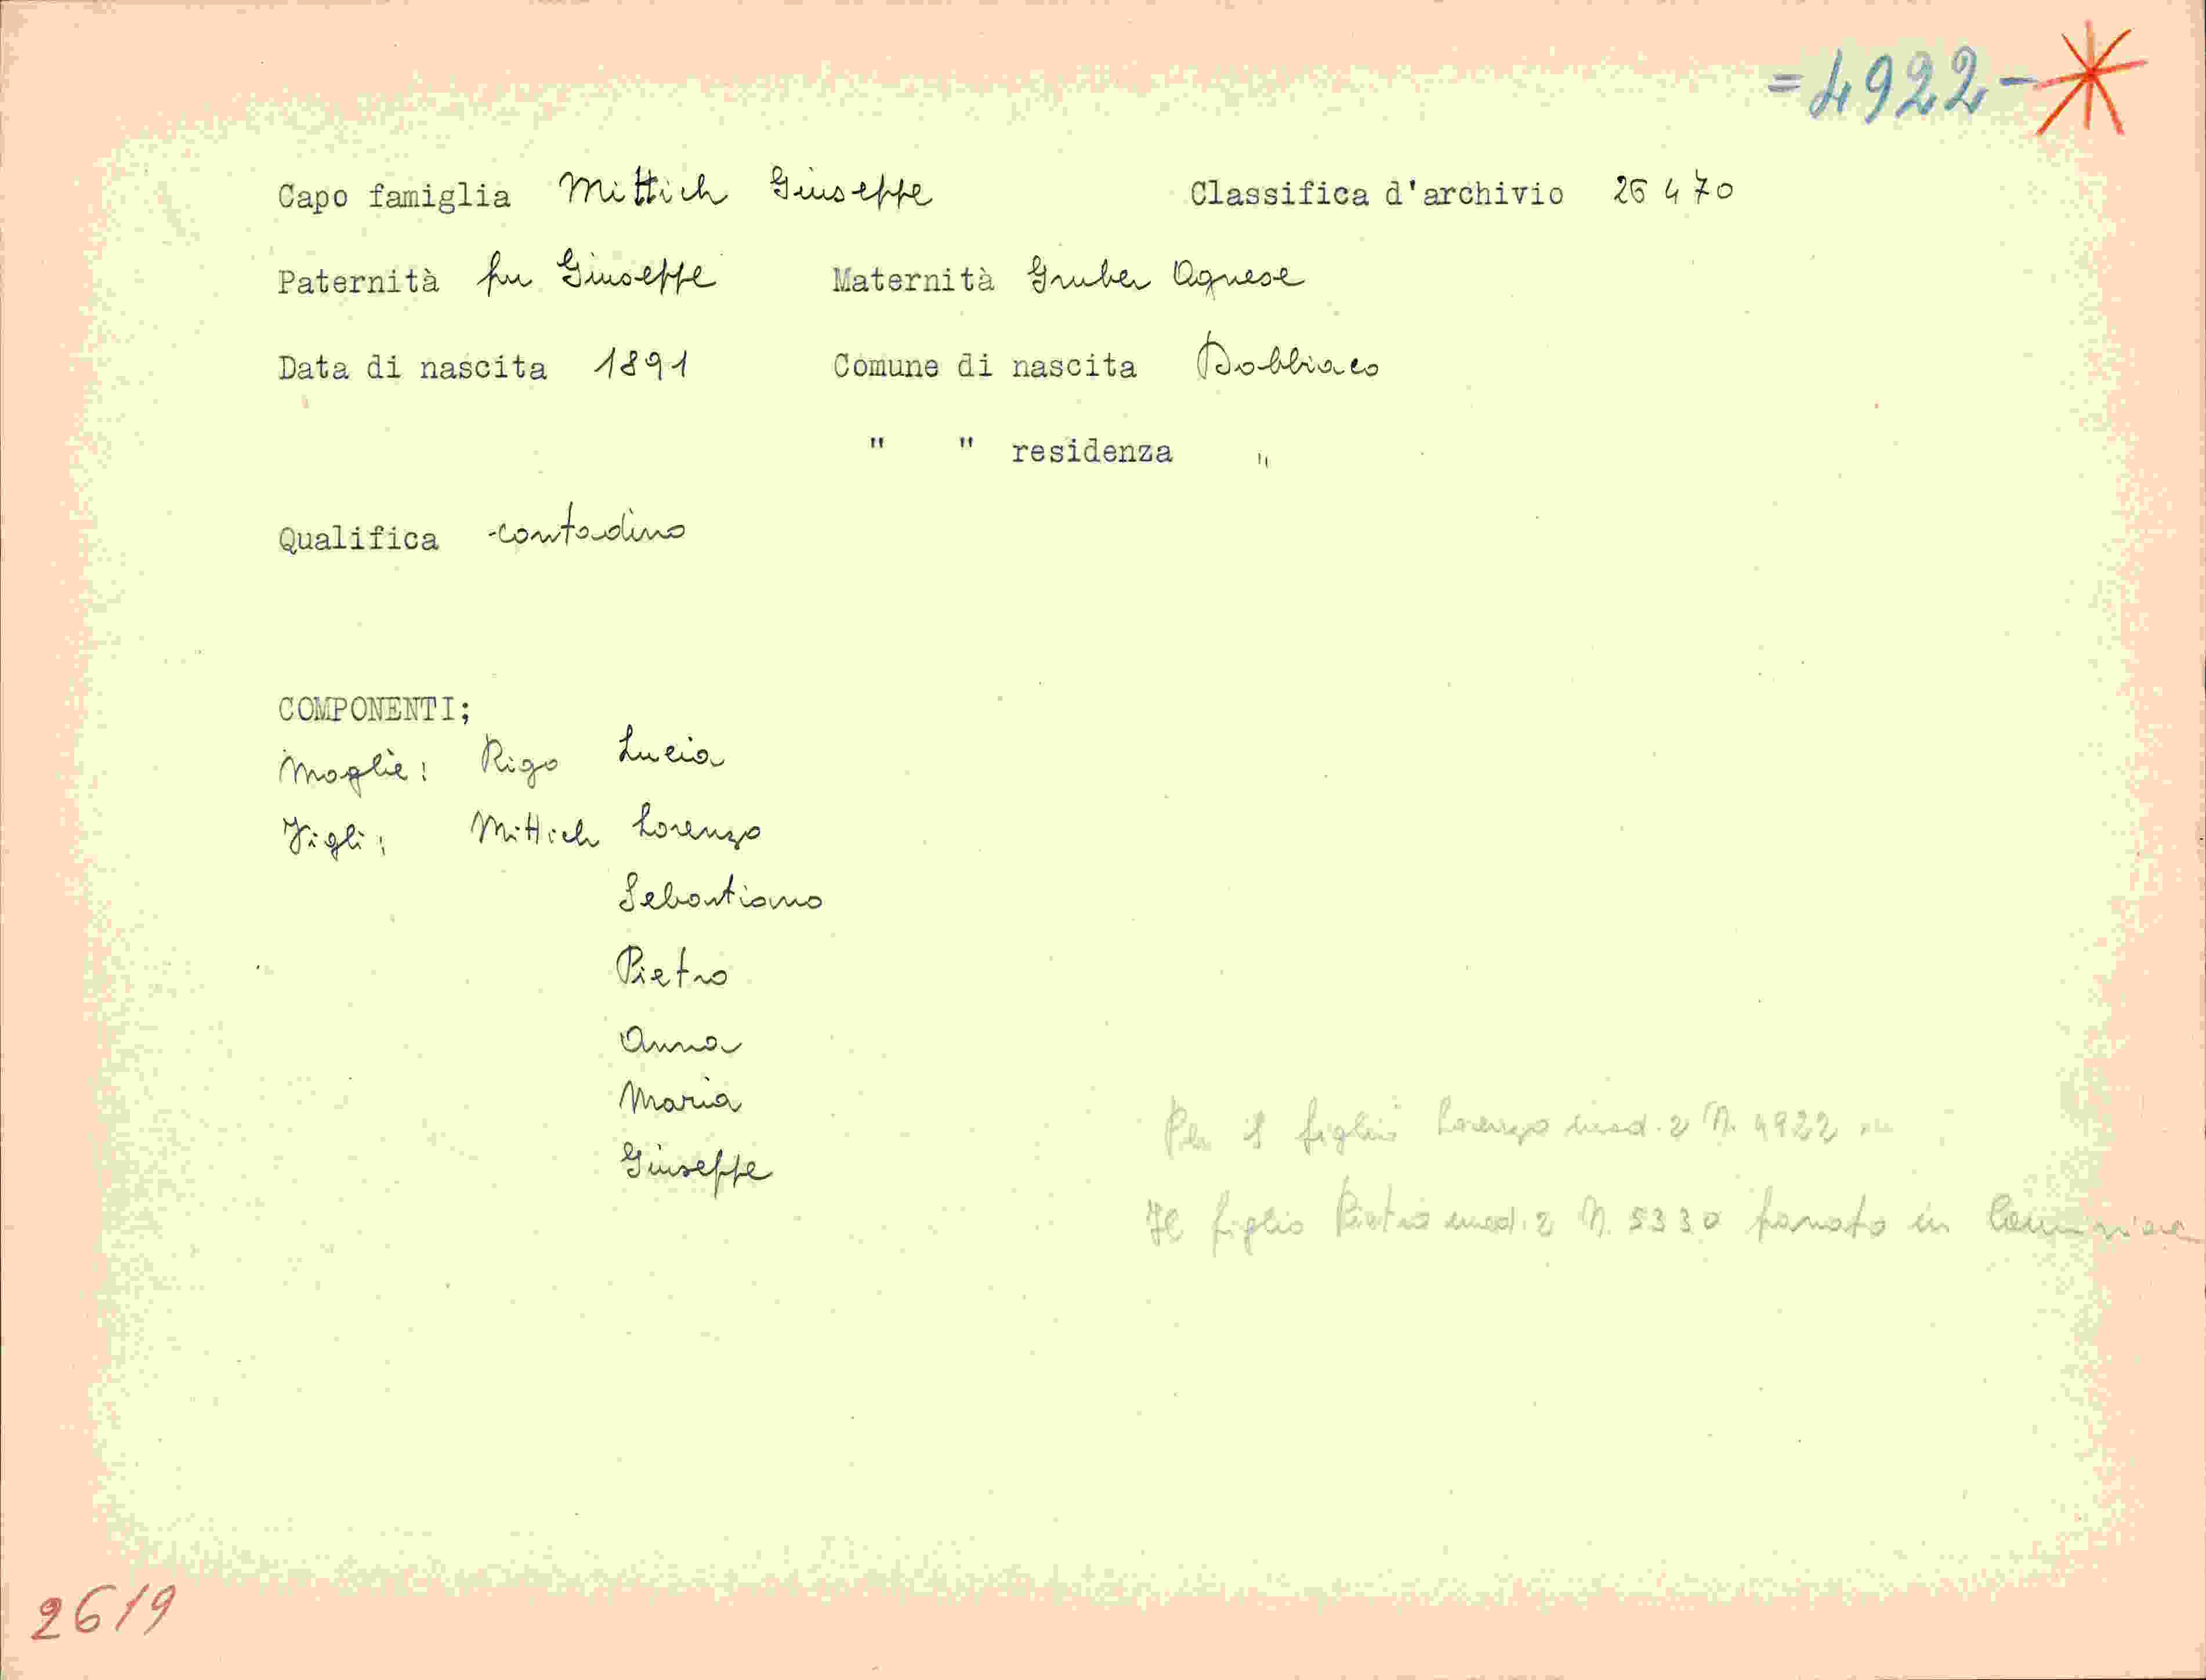 =4922-
Capo famiglia Mittich Giuseppe Classifica d'archivio 26470
Paternità fu Giuseppe Maternità Gruber Agnese
Data di nascita 1891 Comune di nascita Dobbiaco
" " residenza "
Qualifica contadino
COMPONENTI;
Moglie: Rigo Lucia
Figli: Mittich Lorenzo
Sebastiano
Pietro
Anna
Maria
Giuseppe
Per il figlio Lorenzo mod. 2 N. 4922
Il figlio Pietro mod. 2 N. 5330 in
2619